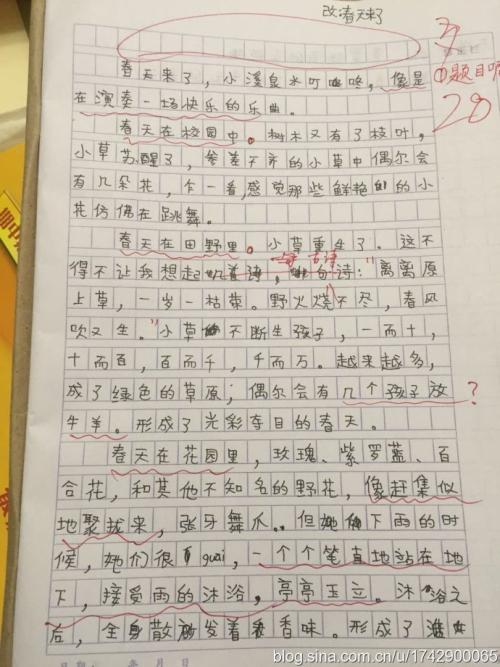 改:春天来了
①题目呢
28
春天来了，小溪泉水叮咚咚，像是
在演奏一场快乐的乐曲。
春天在校园中。树木又有了枝叶，
小草苏醒了，参差不齐的小草中偶尔会
有几朵花，乍一看，感觉那些鲜艳的小
花仿佛在跳舞。
春天在田野里。小草重生了。这不
古诗
得不让我想起诗："离离原
上草，一岁一枯荣。野火烧不尽，春风
吹又生。"小草不断生孩子，一而十，
十而百，百而千，千而万。越来越多，
成了绿色的草原；偶尔会有几个孩子放
？
牛羊。形成了光彩夺目的春天。
春天在花园里，玫瑰、紫罗蓝、百
合花，和其他不知名的野花，像赶集似
地聚拢来，张牙舞爪。但她下雨的时
候，她们很guai，一个个笔直地站在地
下，接受雨的沐浴，亭亭玉立。沐浴之
后，全身散发着香味。形成了
blog.sina.com.cn/u/1742900065